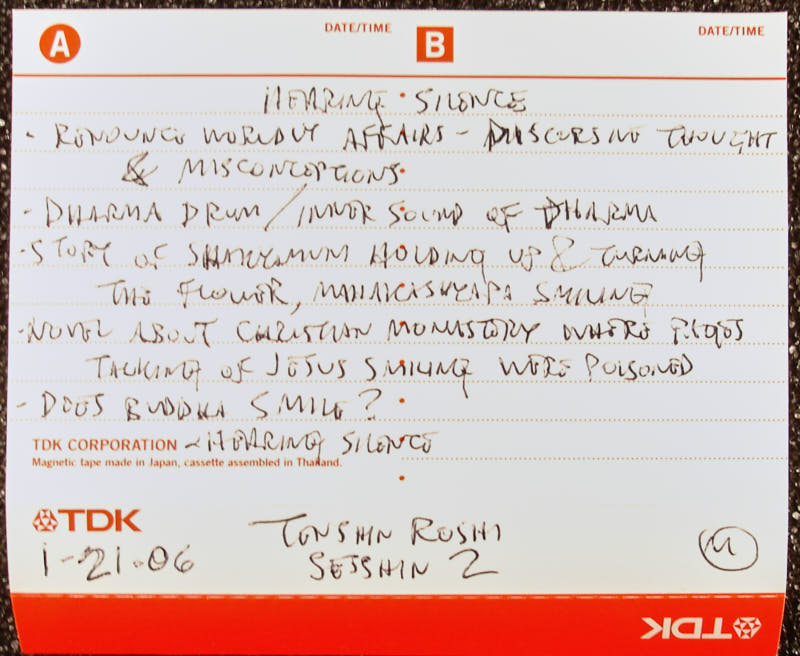 A DATE/TIME B DATE/TIME
HEARING SILENCE
- RENOUNCE WORLDLY AFFAIRS - DISCURSIVE THOUGHT
& MISCONCEPTIONS
- DHARMA DRUM / INNER SOUND OF DHARMA
- STORY OF SHAKYAMUNI HOLDING UP & TURNING
THE FLOWER, MAHAKASHYAPA SMILING
- NOVEL ABOUT CHRISTIAN MONASTERY WHERE
TALKING OF JESUS SMILING WERE POISONED
- DOES BUDDHA SMILE?
TDK CORPORATION - HEARING SILENCE
Magnetic tape made in Japan, cassette assembled in Thailand.
TDK TENSHIN ROSHI
1-21-06 SESSHIN 2 M
TDK